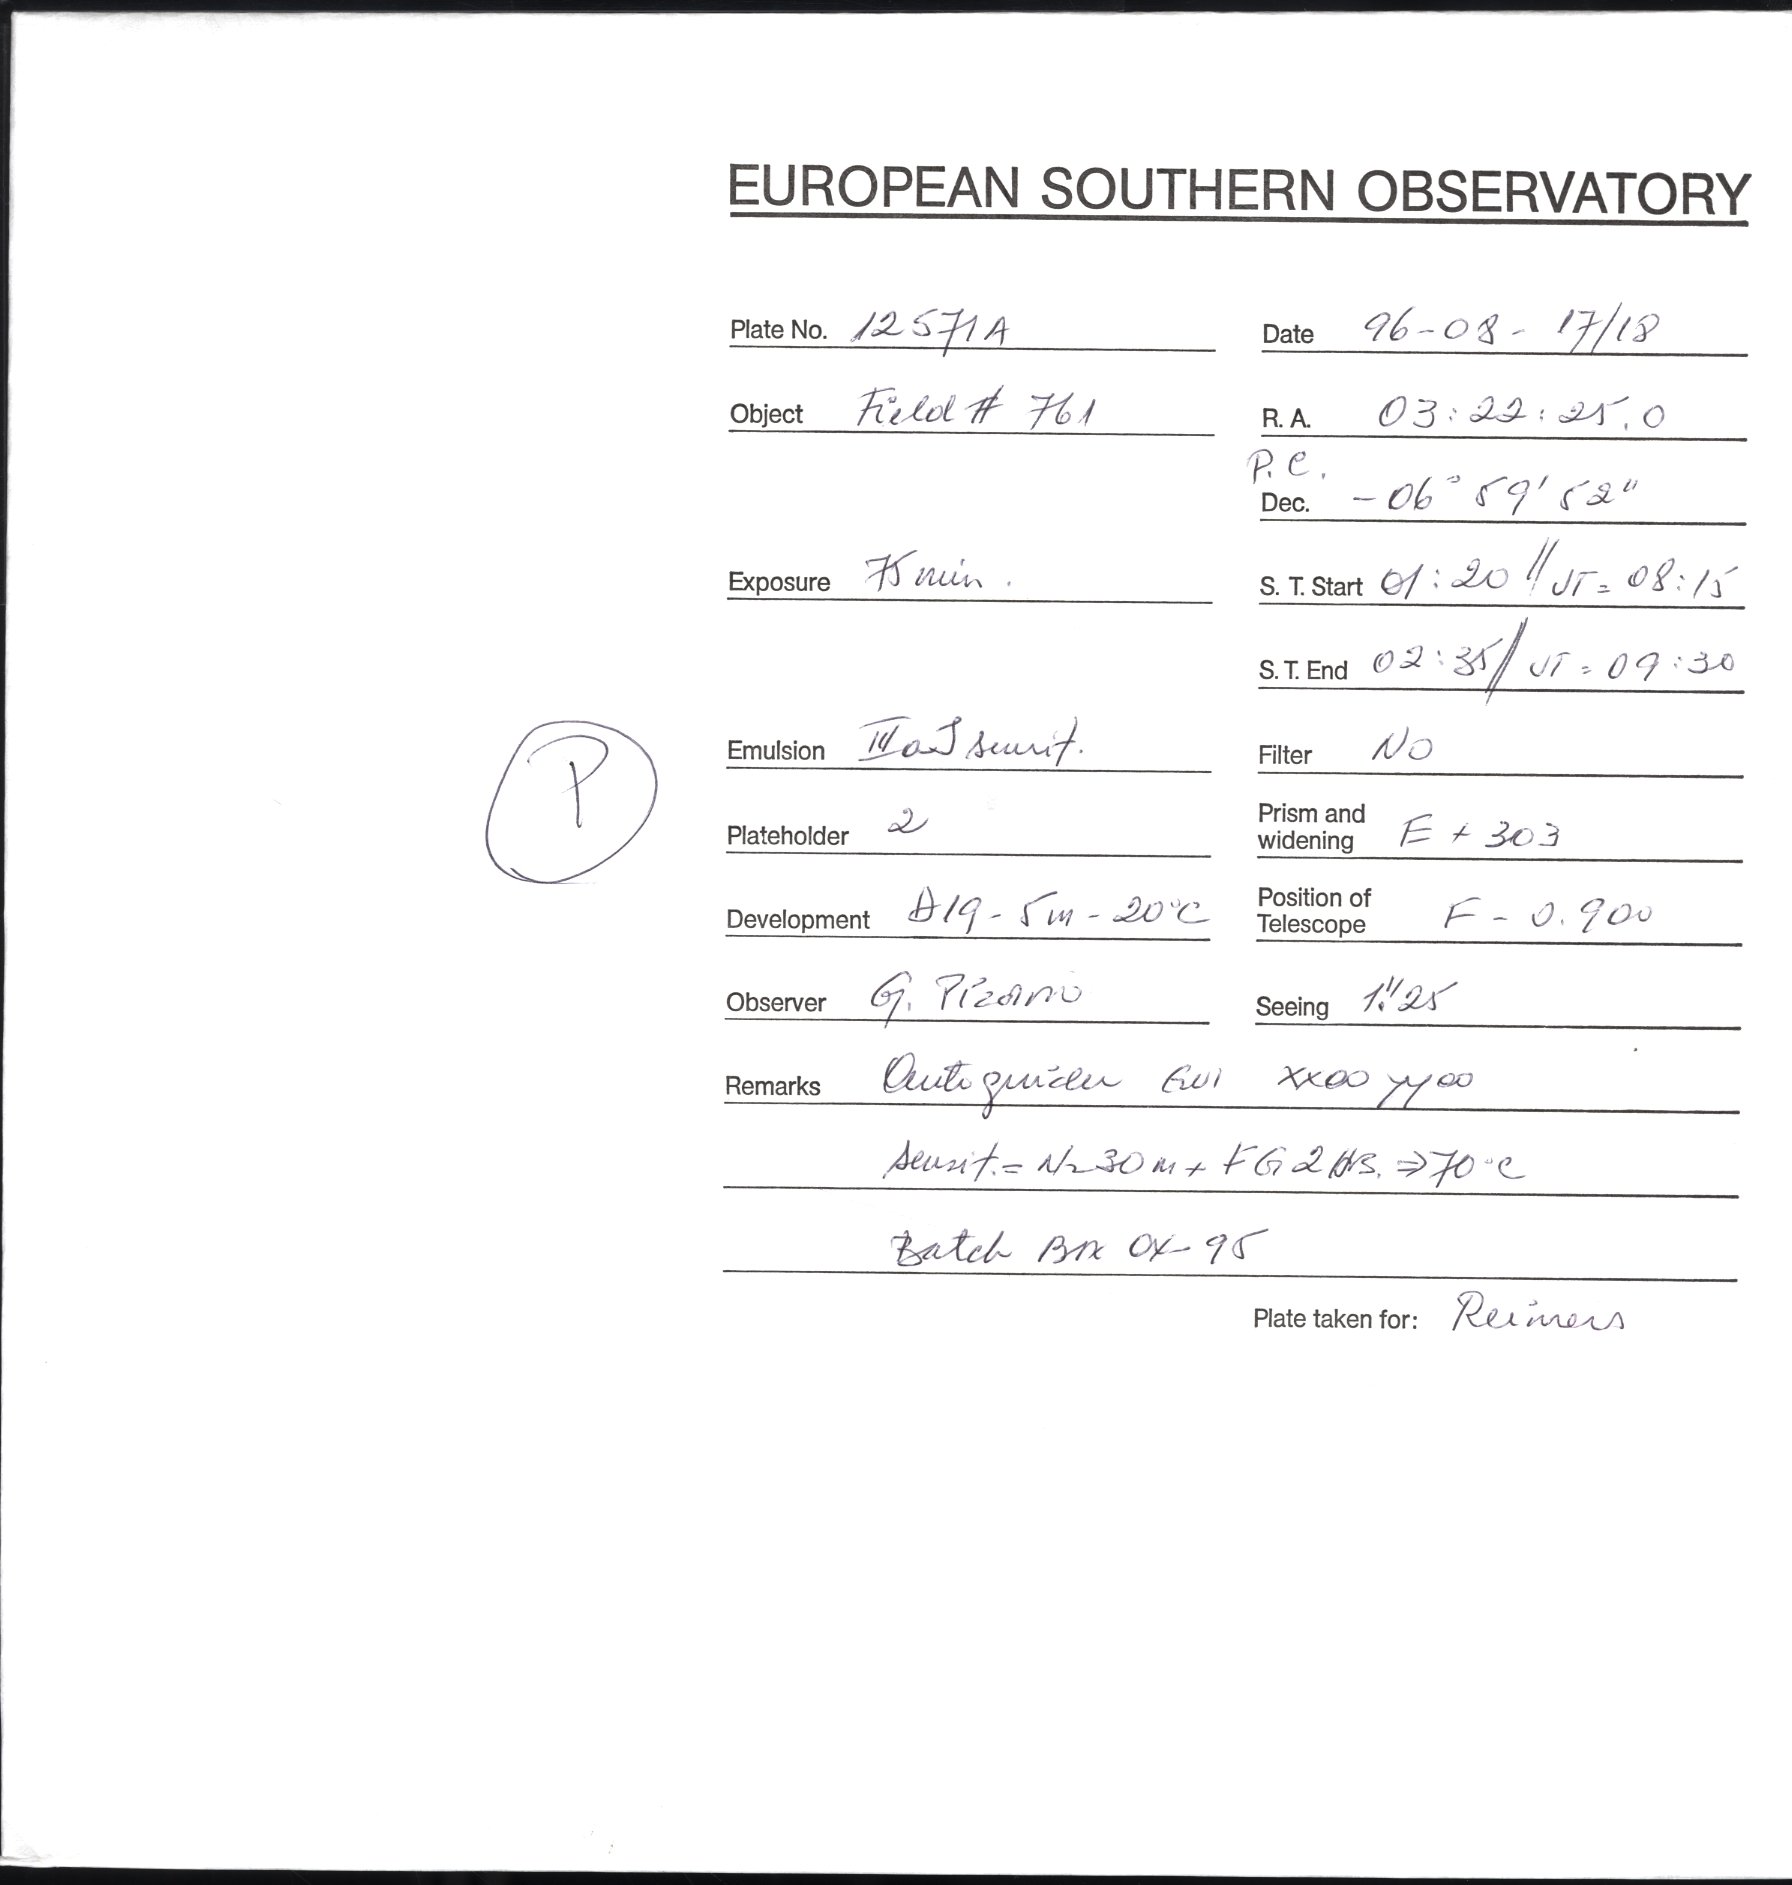 EUROPEAN SOUTHERN OBSERVATORY
Plate No. 12571A Date 96-08-17/18
Object Field # 761 R. A. 03:22:25.0
P.C.
Dec. -06° 59' 52"
Exposure 75 min. S. T. Start 01:20 // UT= 08:15
S. T. End 02:35 // UT= 09:30
P
Emulsion IIIaJ sensit. Filter NO
Plateholder 2 Prism and widening E + 303
Development D19-5m-20°C Position of Telescope F-0.900
Observer G. Pizarro Seeing 1."25
Remarks Autoguider xx00 yy00
sensit.= N2 30m + FG 2 HS. ⇒ 70°C
Batch 95
Plate taken for: Reimers